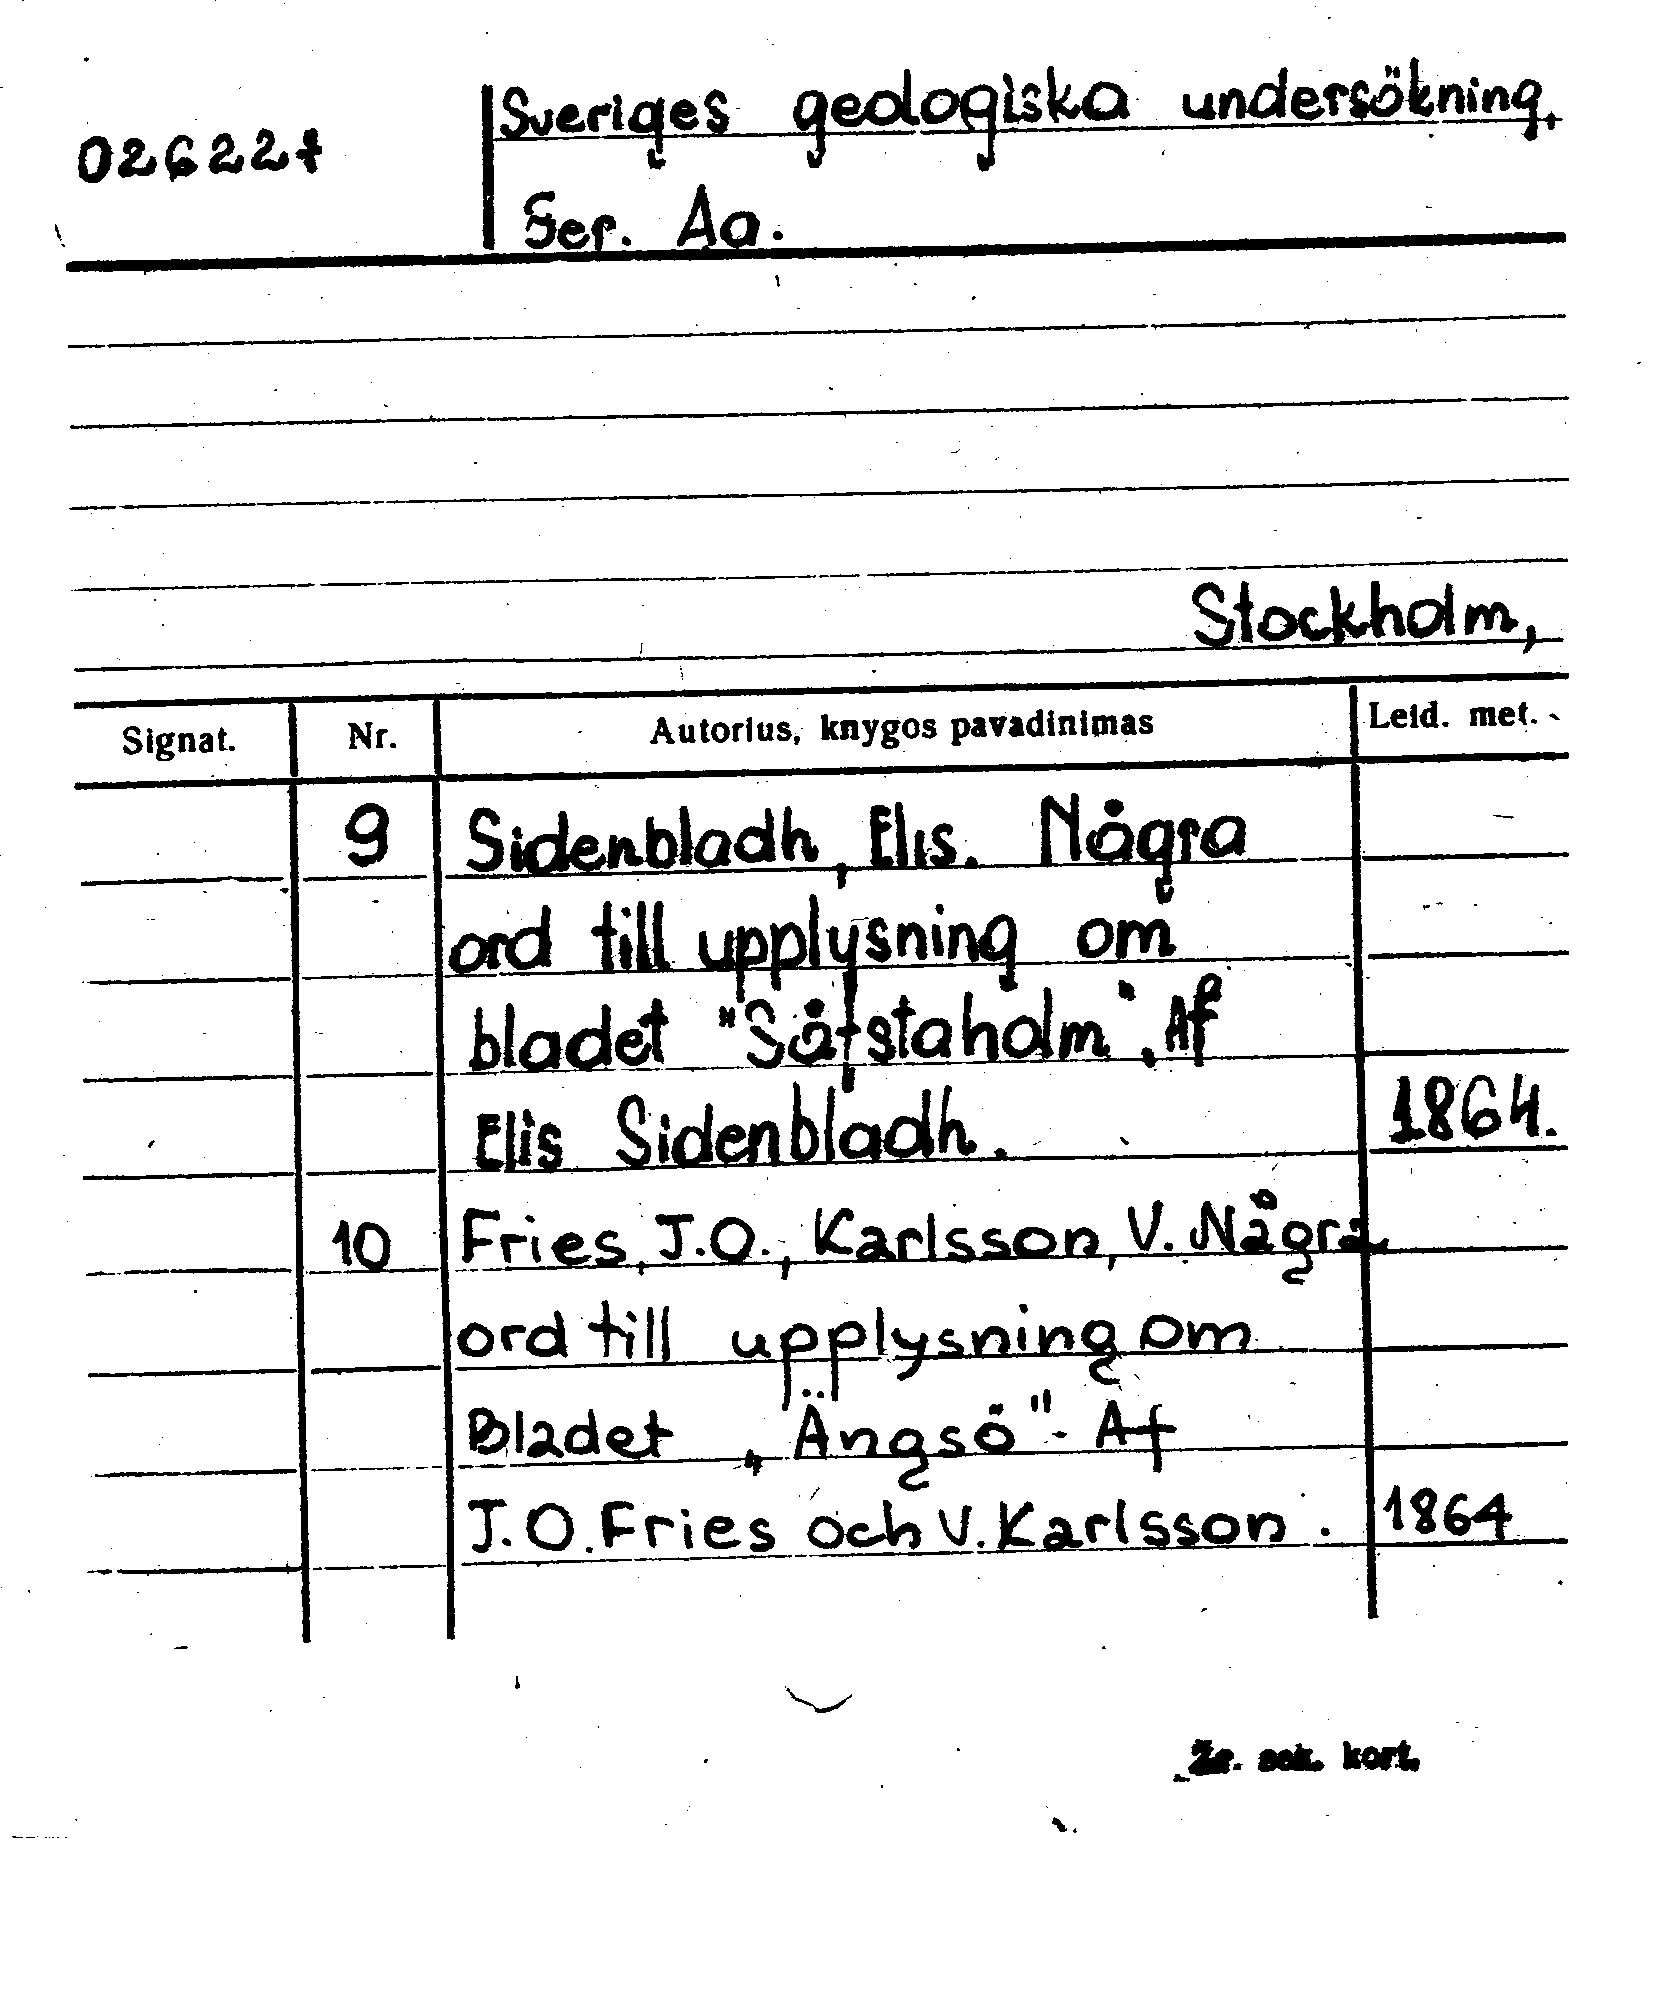 026227
Sveriges geologiska undersökning.
Ser. Aa.
Stockholm,
Signat. Nr. Autorius, knygos pavadinimas Leid. met.
9 Sidenbladh, Elis. Några
ord till upplysning om
bladet "Såfstaholm". Af
Elis Sidenbladh. 1864.
10 Fries, J.O., Karlsson, V. Några
ord till upplysning om
Bladet „Ängsö"- Af
J.O. Fries och V. Karlsson. 1864
Žr. sek. kort.